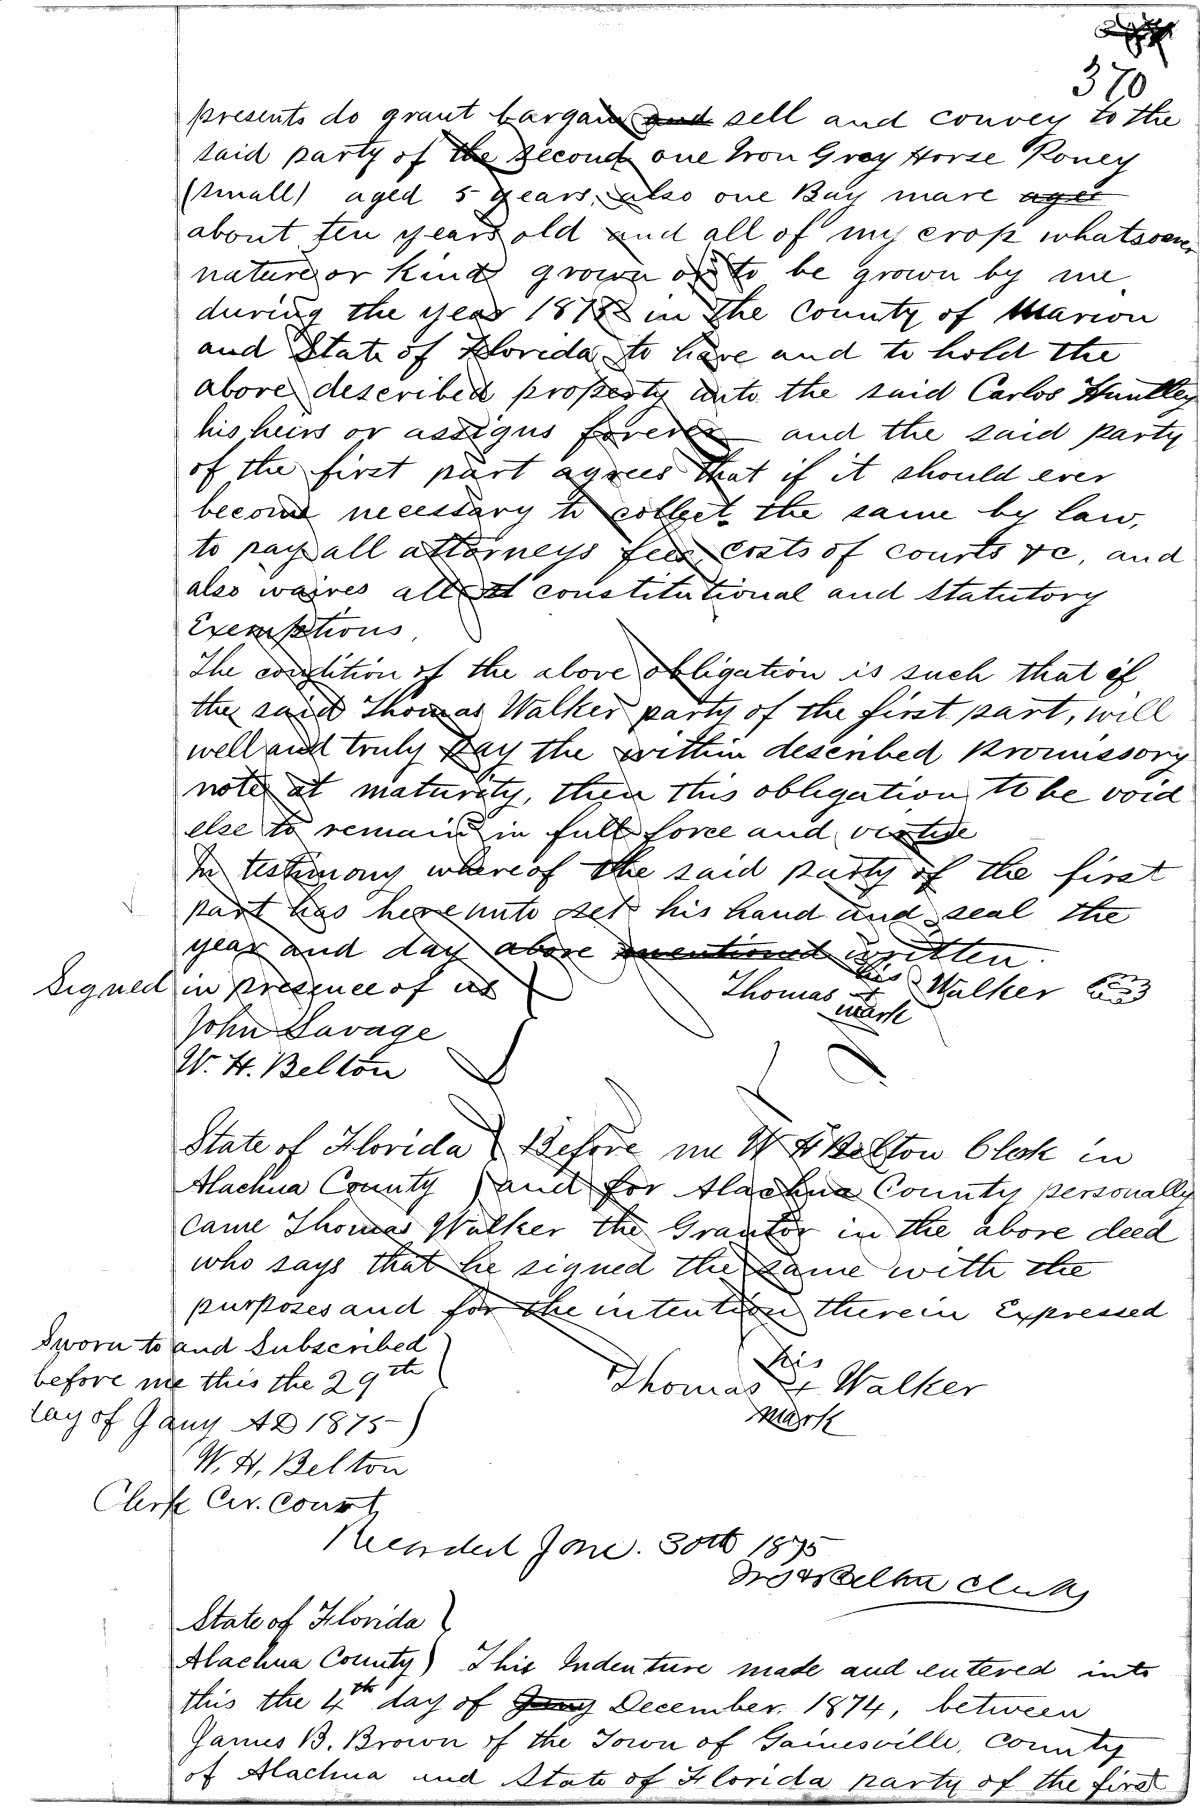 370
presents do grant bargain and sell and convey to the
said party of the second one Iron Grey Horse Roney
(small) aged 5 years, also one Bay mare aged
about ten years old and all of my crop whatsoever
nature or kind grown or to be grown by me
during the year 187 in the County of Marion
and State of Florida to have and to hold the
above described property unto the said Carlos Huntley
his heirs or assigns forever and the said party
of the first part agrees that if it should ever
become necessary to collect the same by law,
to pay all attorneys fees, costs of courts &c, and
also waives all constitutional and Statutory
Exemptions.
The condition of the above obligation is such that if
the said Thomas Walker party of the first part, will
well and truly pay the within described promissory
note at maturity, then this obligation to be void
else to remain in full force and virtue
In testimony whereof the said party of the first
part has here unto set his hand and seal the
year and day above mentioned written.
Signed in presence of us
his
Thomas + Walker
mark
John Savage
W. H. Belton
State of Florida } Before me W H Belton Clerk in
Alachua County } and for Alachua County personally
came Thomas Walker the Grantor in the above deed
who says that he signed the same with the
purposes and for the intention therein Expressed
Sworn to and Subscribed
before me this the 29th
day of Jany AD 1875
his
Thomas + Walker
mark
W. H. Belton
Clerk Cir. Court
Recorded Jany. 30th 1875
Belton Clerk
State of Florida }
Alachua County } This Indenture made and entered into
this the 4th day of Jany December. 1874, between
James B. Brown of the Town of Gainesville, County
of Alachua and State of Florida party of the first